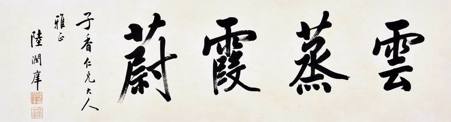 雲蒸霞蔚
子香仁兄大人
雅正
陸潤庠